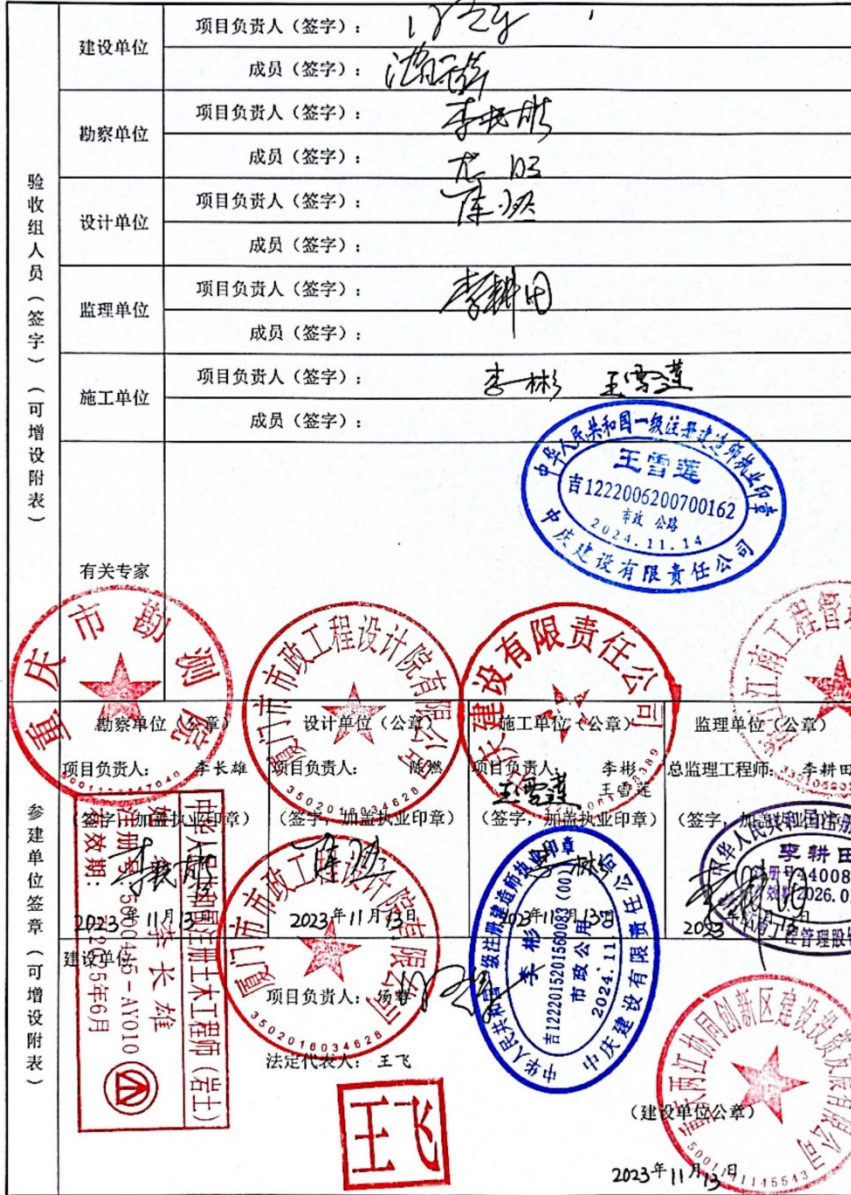 验收组人员（签字）（可增设附表）
建设单位
项目负责人（签字）：
成员（签字）：
勘察单位
项目负责人（签字）： 李长雄
成员（签字）：
设计单位
项目负责人（签字）： 陈燃
成员（签字）：
监理单位
项目负责人（签字）： 李耕田
成员（签字）：
施工单位
项目负责人（签字）： 李彬 王雪莲
成员（签字）：
中华人民共和国一级注册建造师执业印章
王雪莲
吉1222006200700162
市政 公路
2024.11.14
中庆建设有限责任公司
有关专家
重庆市勘测院
厦门市市政工程设计院有限公司
3502016034628
庆建设有限责任公司
江南工程管理
参建单位签章（可增设附表）
勘察单位（公章）
项目负责人： 李长雄
（签字，加盖执业印章）
李长雄
2023年11月13日
设计单位（公章）
项目负责人： 陈燃
（签字，加盖执业印章）
陈燃
2023年11月13日
施工单位（公章）
项目负责人： 李彬
王雪莲
王雪莲
（签字，加盖执业印章）
李彬
2023年11月13日
监理单位（公章）
总监理工程师： 李耕田
（签字，加盖执业印章
李耕田
2023
中华人民共和国注册土木工程师（岩土）
姓名：李长雄
注册号：5000445-AY010
有效期：
5年6月
厦门市市政工程设计院有限公司
3502016034628
中华人民共和国一级注册建造师执业印章
李彬
吉1222015201560083(00)
市政公用
2024.11.05
中庆建设有限责任公司
中华人民共和国注册
李耕田
2026.0
工程管理股
建设单位
项目负责人：杨
法定代表人：王飞
王飞
重庆两江协同创新区建设投资发展有限公司
（建设单位公章）
2023年11月13日